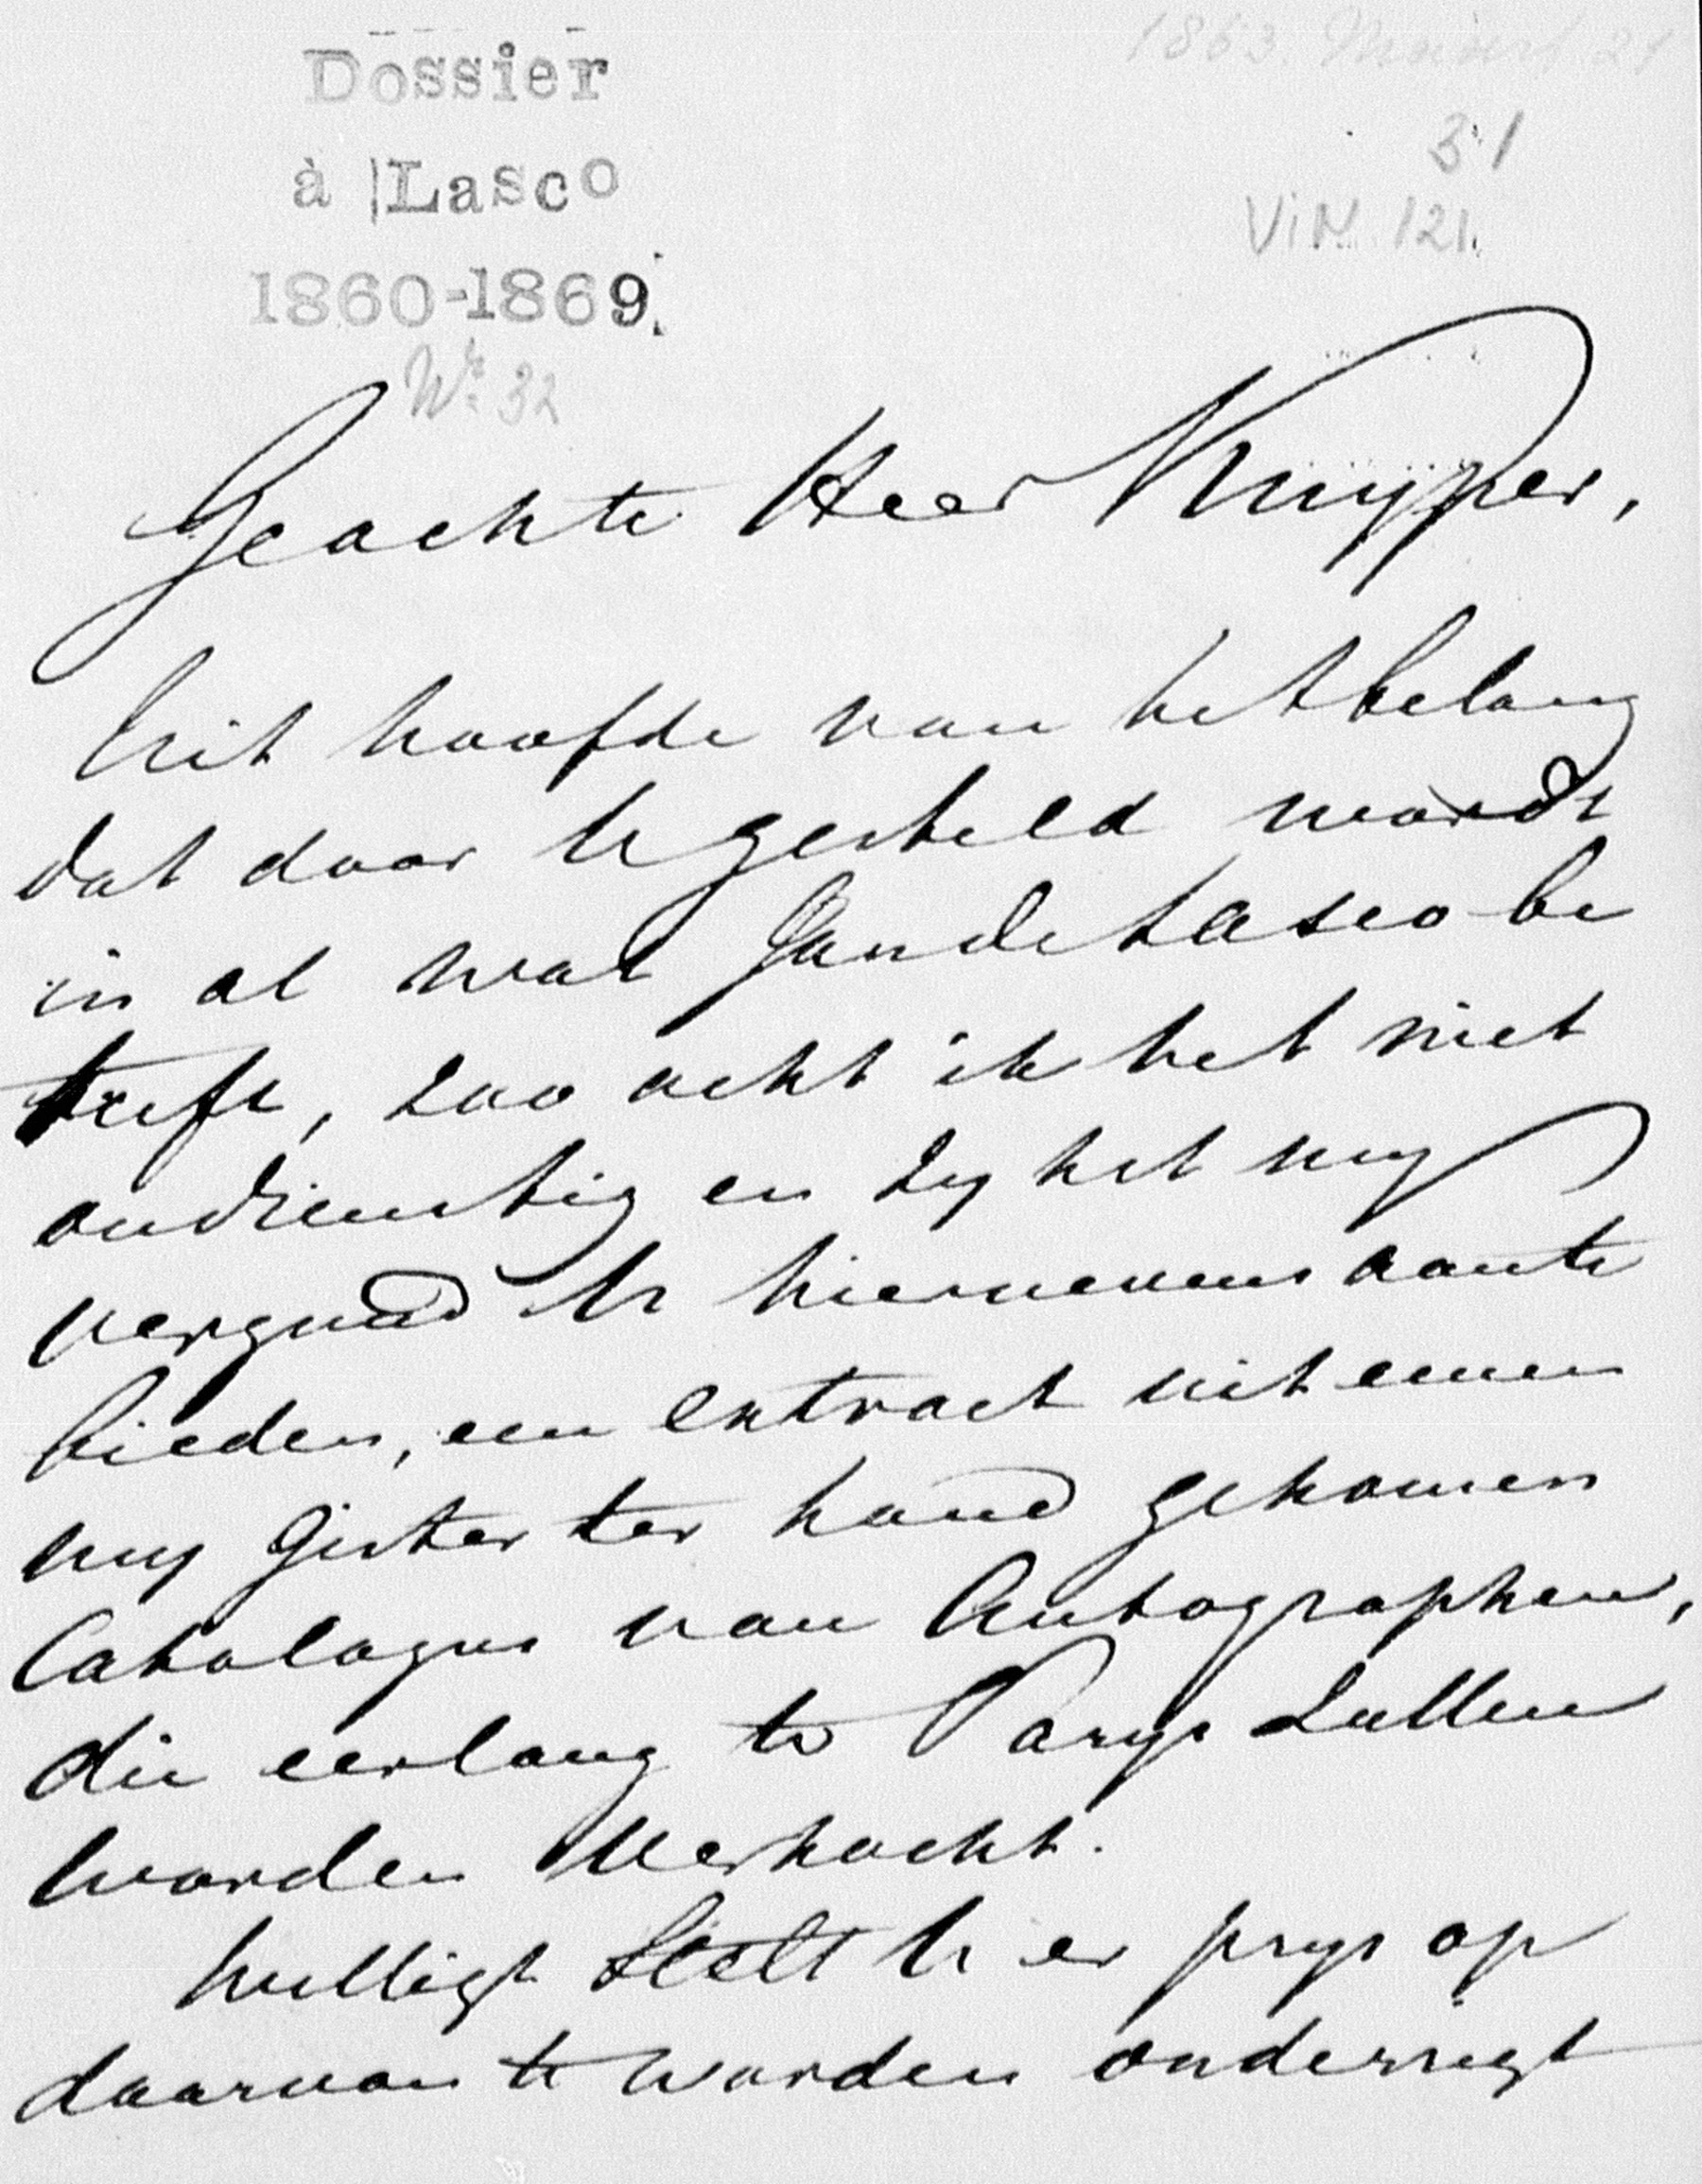 Dossier
à Lasco
1860-1869.
Nr. 32
1863 Maart 21
31
ViN. 121.
Geachte Heer Kuyper,
Uit hoofde van het belang
dat door U gesteld wordt
in al wat Jan de Lasco be
treft, zoo acht ik het niet
ondienstig en zy het my
vergund U hiernevens aan te
bieden, een extract uit eenen
my gister ter hand gekomen
Catalogus van Autographen,
die eerlang te Parys zullen
worden Verkocht.
Welligt stelt U er prys op
daarvan te worden onderrigt